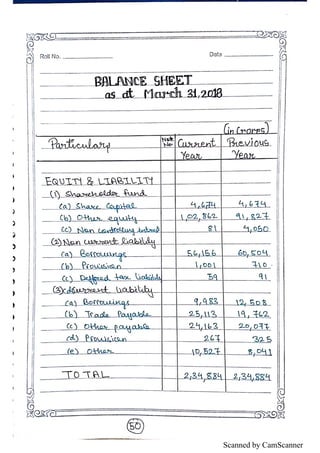 Roll No. Date
BALANCE SHEET
as at March 31, 2018
(in crores)
Particulars Note No Current Year Previous Year
EQUITY & LIABILITY
(1) Shareholder fund
(a) Share Capital 4,674 4,674
(b) Other equity 1,02,862 91,827
(c) Non controlling intrest 81 4,050
(2) Non current liability
(a) Borrowings 56,156 60,504
(b) Provision 1,001 710
(c) Deffred tax liability 59 91
(3) Current liability
(a) Borrowings 9,983 12,508
(b) Trade Payable 25,113 19,762
(c) Other payable 24,163 20,077
(d) Provision 267 325
(e) Other 10,527 8,041
TOTAL 2,34,884 2,34,884
50
Scanned by CamScanner